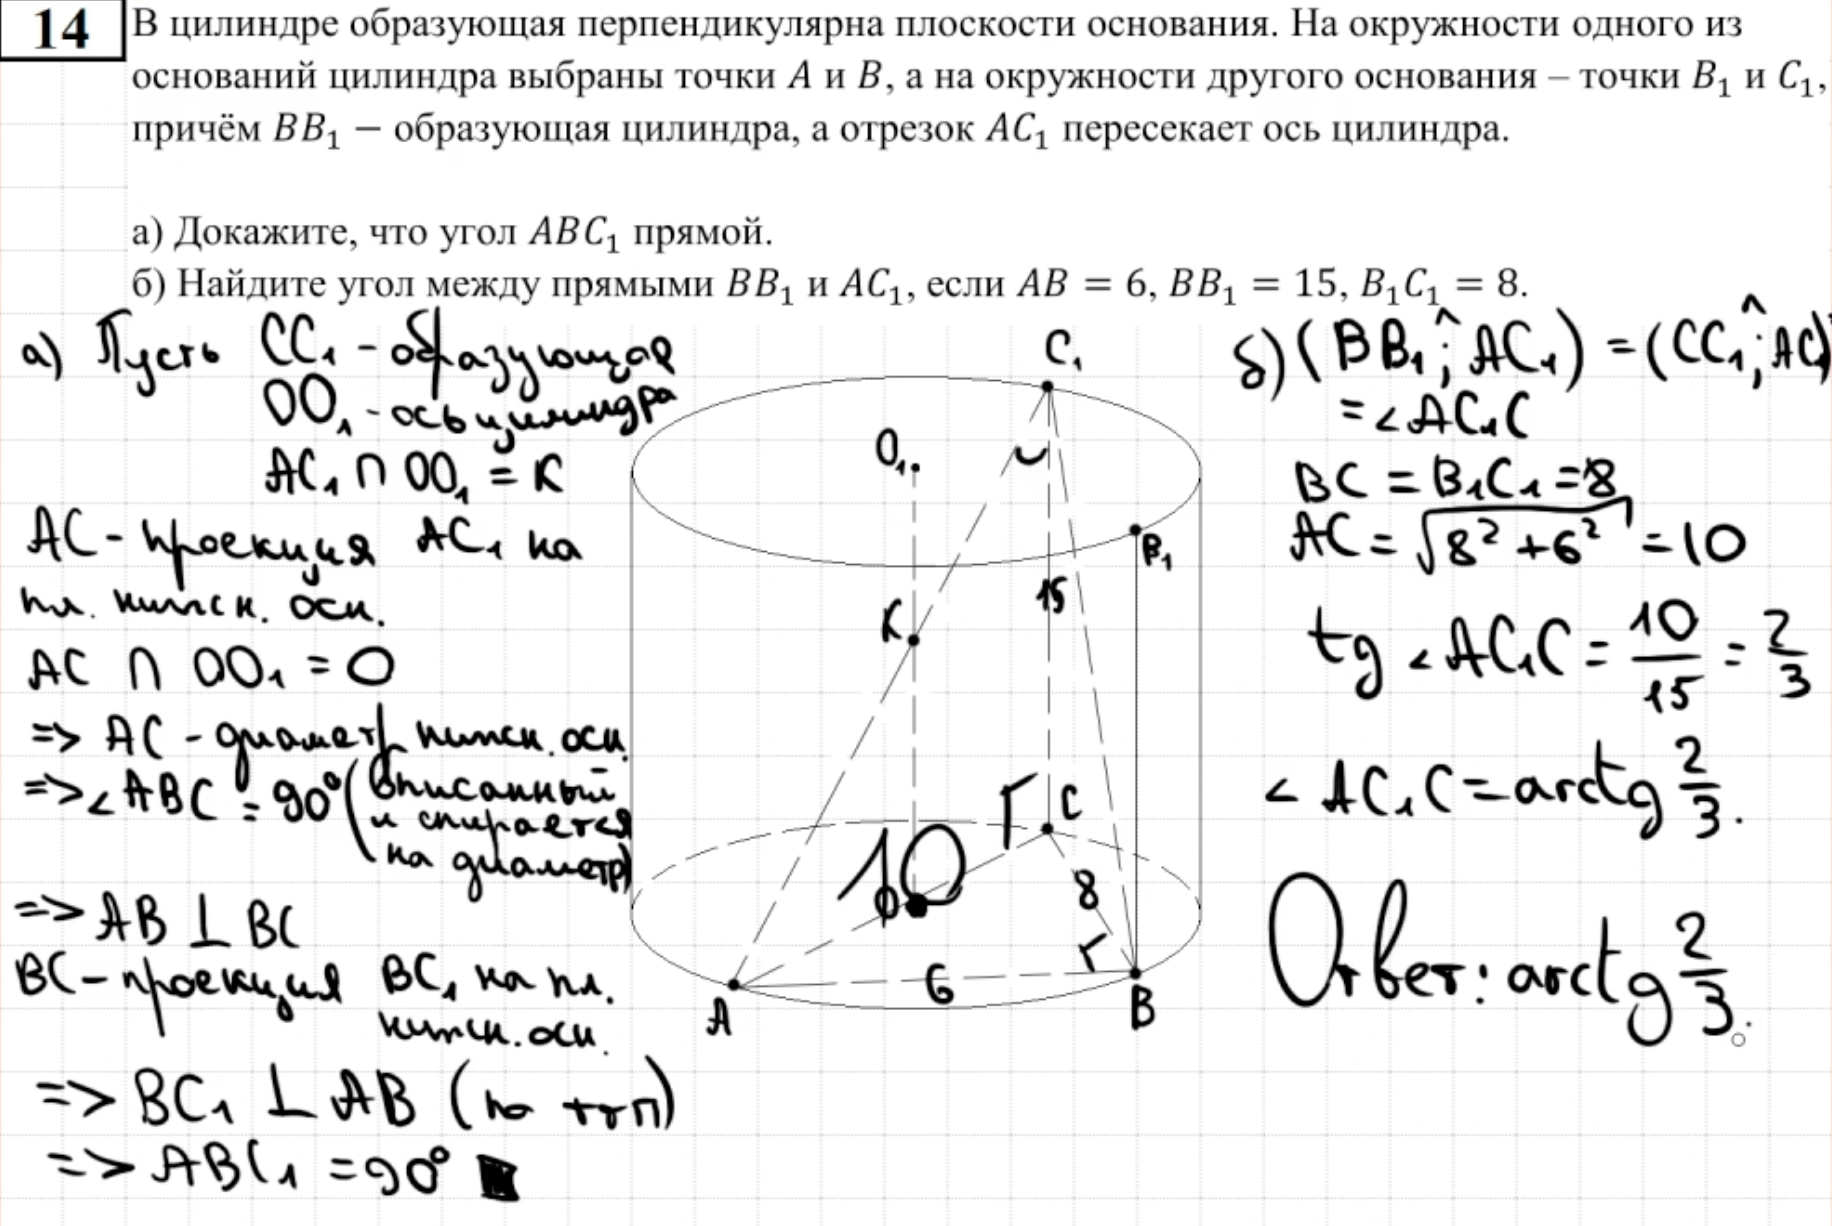 14
В цилиндре образующая перпендикулярна плоскости основания. На окружности одного из
оснований цилиндра выбраны точки A и B, а на окружности другого основания – точки B₁ и C₁,
причём BB₁ – образующая цилиндра, а отрезок AC₁ пересекает ось цилиндра.
а) Докажите, что угол ABC₁ прямой.
б) Найдите угол между прямыми BB₁ и AC₁, если AB = 6, BB₁ = 15, B₁C₁ = 8.
а) Пусть CC₁ - образующая
OO₁ - ось цилиндра
AC₁ ∩ OO₁ = K
AC - проекция AC₁ на
пл. нижн. осн.
AC ∩ OO₁ = O
=> AC - диаметр нижн. осн.
=> ∠ABC = 90° (вписанный
и опирается
на диаметр)
=> AB ⊥ BC
BC - проекция BC₁ на пл.
нижн. осн.
=> BC₁ ⊥ AB (по ттп)
=> ABC₁ = 90°
C₁
O₁
B₁
15
K
C
10
O
8
6
A
B
б) (BB₁; AC₁) = (CC₁; AC₁)
= ∠AC₁C
BC = B₁C₁ = 8
AC = √8² + 6² = 10
tg ∠AC₁C = 10/15 = 2/3
∠AC₁C = arctg 2/3.
Ответ: arctg 2/3.